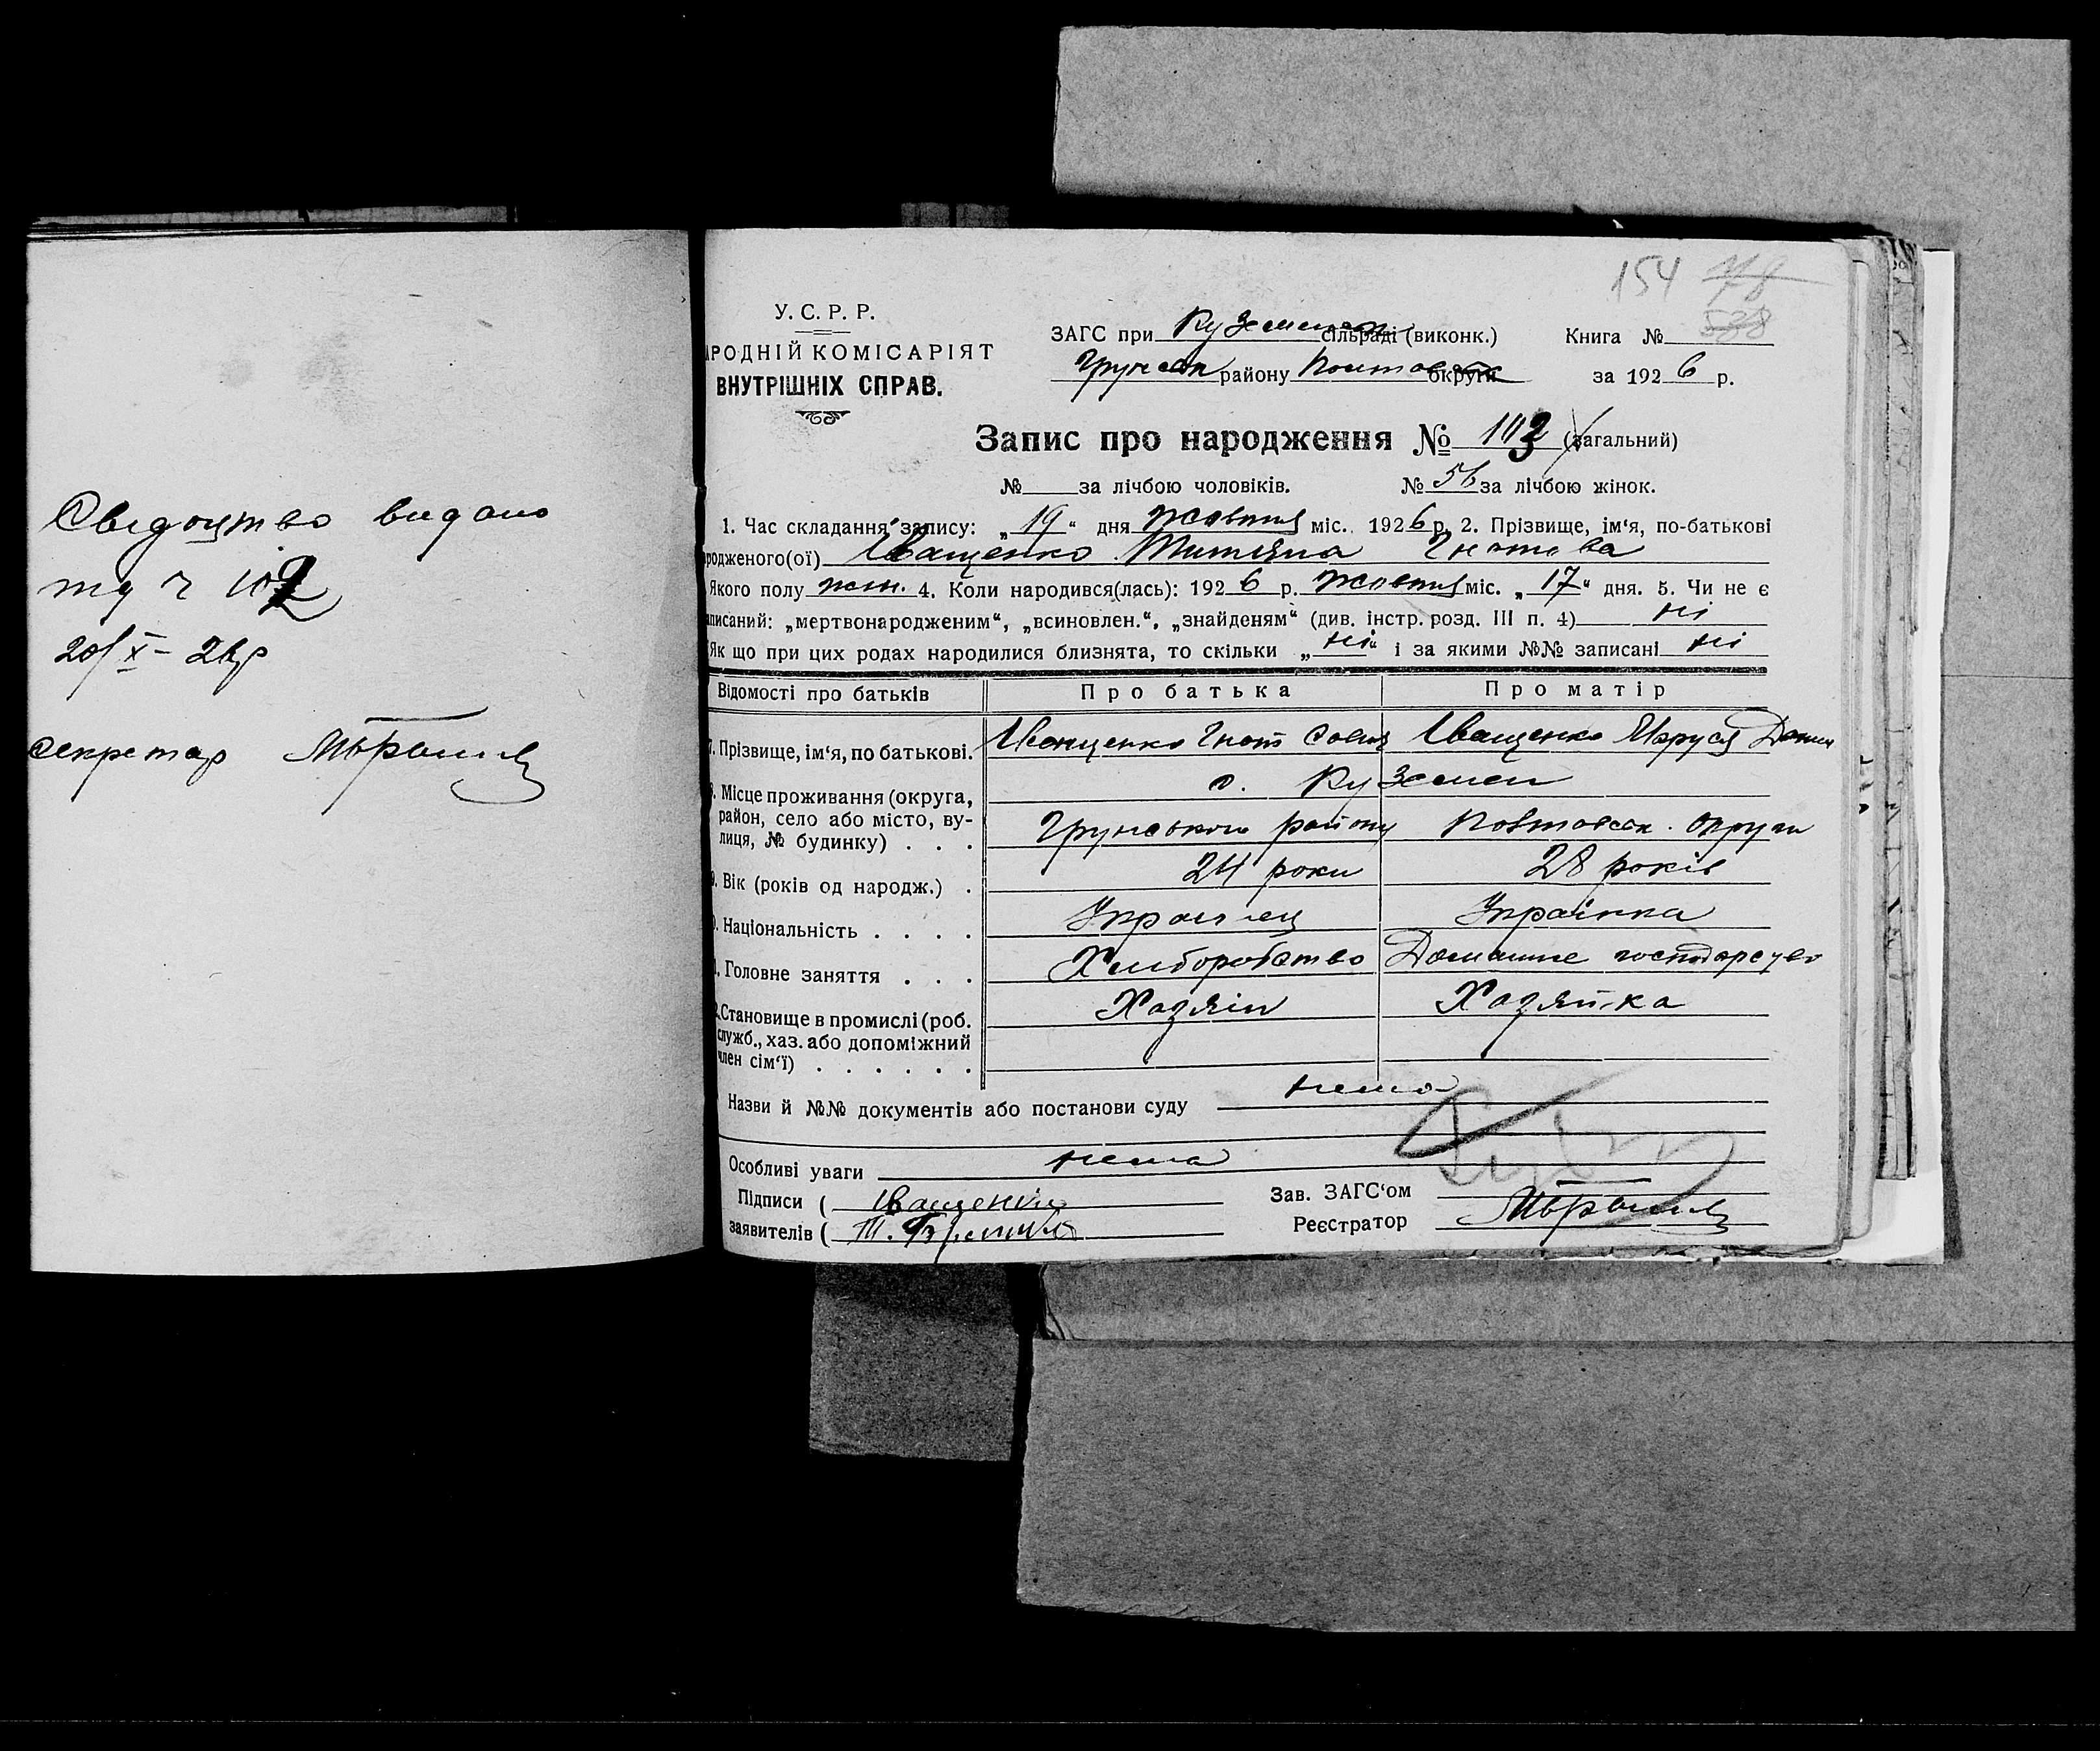 Свідоцтво видано
20/X – 26 р
секретар
154
У. С. Р. Р.
РОДНІЙ КОМІСАРІЯТ
ВНУТРІШНІХ СПРАВ.
ЗАГС при Куземен сільраді (виконк.)
Книга №
Грунськ району Полтавськ округи
за 1926 р.
Запис про народження № (загальний)
№ за лічбою чоловіків.
№ 56 за лічбою жінок.
1. Час складання запису: „19“ дня жовтня міс. 1926 р. 2. Прізвище, ім‘я, по-батькові
родженого(ої) Іващенко Титяна Гнатова
Якого полу жін. 4. Коли народився(лась): 1926 р. жовтня міс. „17“ дня. 5. Чи не є
писаний: „мертвонародженим“, „всиновлен.“, „знайденям“ (див. інстр. розд. III п. 4) ні
Як що при цих родах народилися близнята, то скільки „ні“ і за якими №№ записані ні
Відомості про батьків
Про батька
Про матір
7. Прізвище, ім‘я, по батькові.
Іващенко Гнат Савич
Іващенко Маруся Данил
8. Місце проживання (округа, район, село або місто, вулиця, № будинку) . . .
с. Куземен
Грунського району Полтавськ. округи
9. Вік (років од народж.) .
24 роки
28 років
0. Національність . . . .
Українец
Українка
1. Головне заняття . . .
Хлиборобство
Домашне господарсуво
2. Становище в промислі (роб. служб., хаз. або допоміжний член сім‘ї) . . . . . .
Хазяін
Хазяйка
Назви й №№ документів або постанови суду нема
Особливі уваги нема
Підписи ( Іващенко
заявителів (
Зав. ЗАГС‘ом
Реєстратор